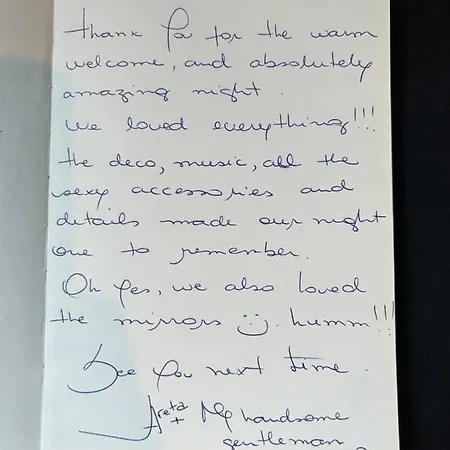 Thank You for the warm
welcome, and absolutely
amazing night.
We loved everything!!!
the deco, music, all the
sexy accessories and
details made our night
one to remember.
Oh Yes, we also loved
the mirrors :). humm!!!
See you next time.
Areta
+ My handsome
gentleman